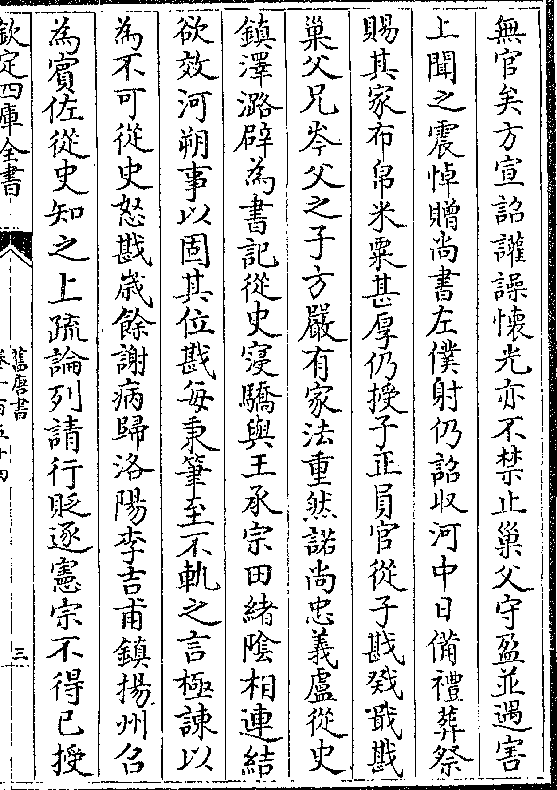 無官矣方宣詔讙譟懷光亦不禁止巢父守盈並遇害
上聞之震悼贈尚書左僕射仍詔収河中日備禮葬祭
賜其家布帛米粟甚厚仍授子正員官從子戡戣戢戡
巢父兄岑父之子方嚴有家法重然諾尚忠義盧從史
鎮澤潞辟為書記從史寖驕與王承宗田緒陰相連結
欲效河朔事以固其位戡毎秉筆至不軌之言極諫以
為不可從史怒戡歳餘謝病歸洛陽李吉甫鎮揚州召
為賔佐從史知之上疏論列請行貶逐憲宗不得已授
欽定四庫全書
舊唐書
卷一百五十四
三